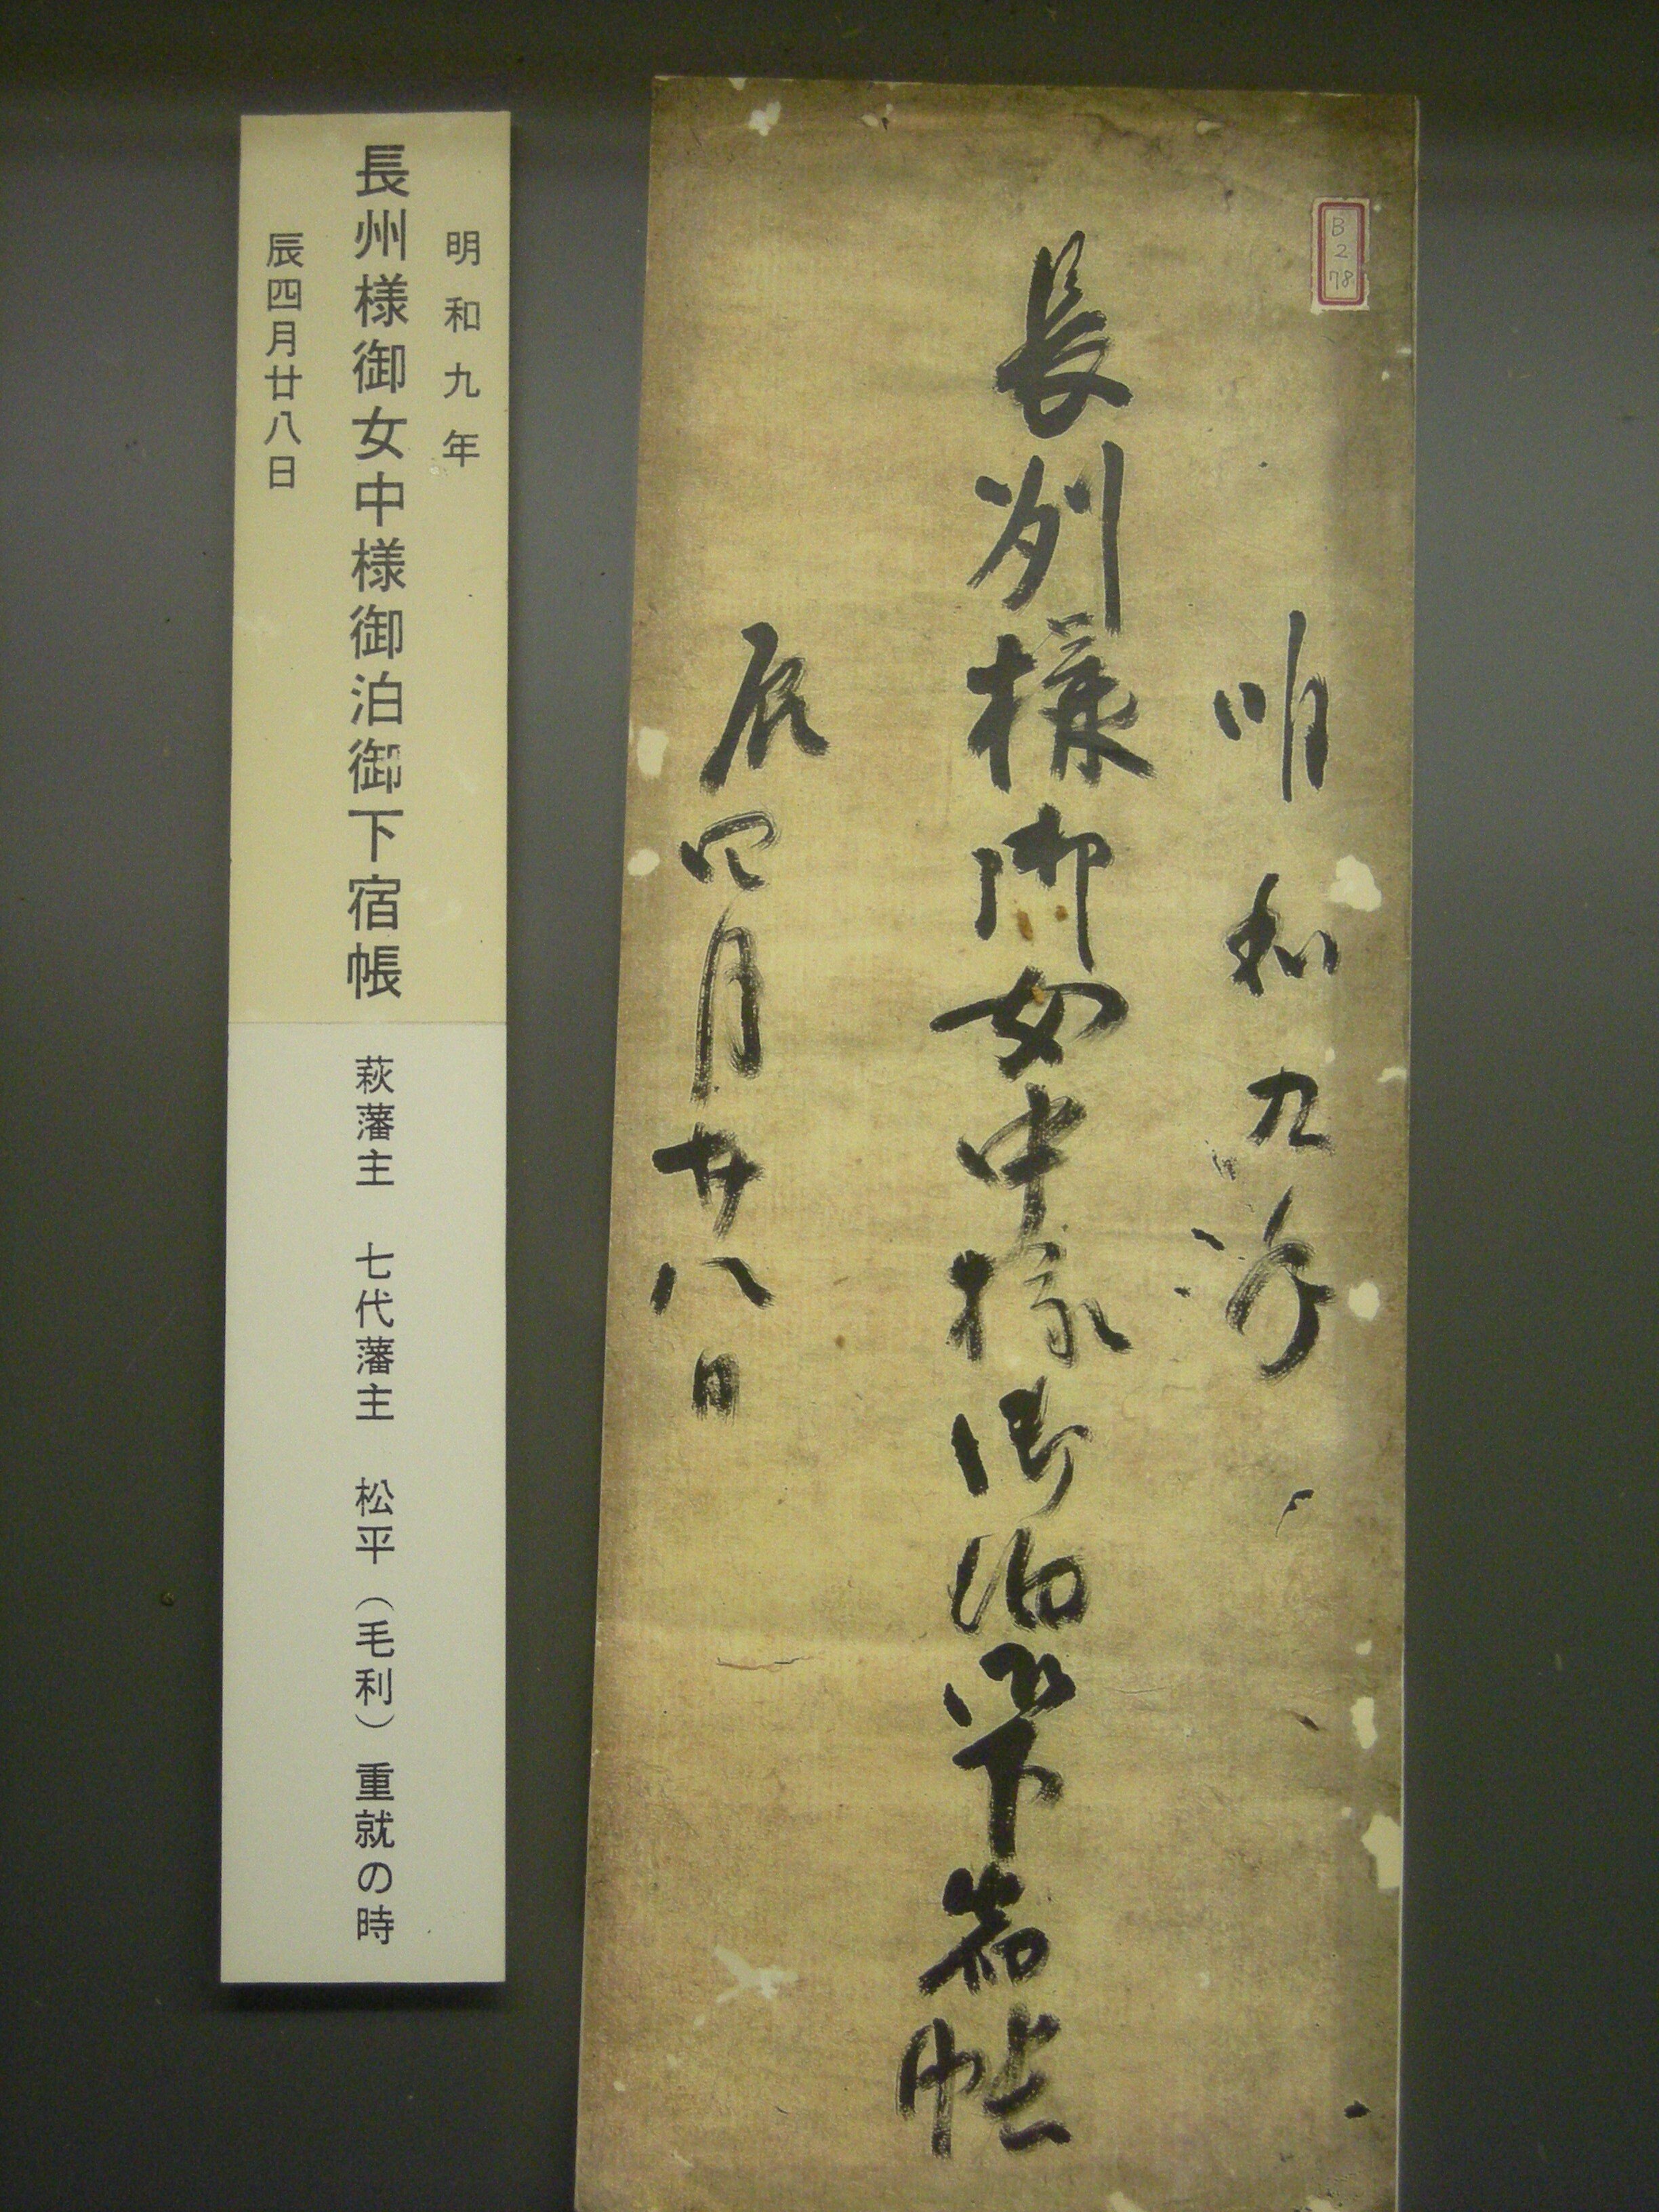 B
2
78
明和九年
長州様御女中様御泊御下宿帳
辰四月廿八日
明和九年
長州様御女中様御泊御下宿帳 萩藩主 七代藩主 松平（毛利）重就の時
辰四月廿八日